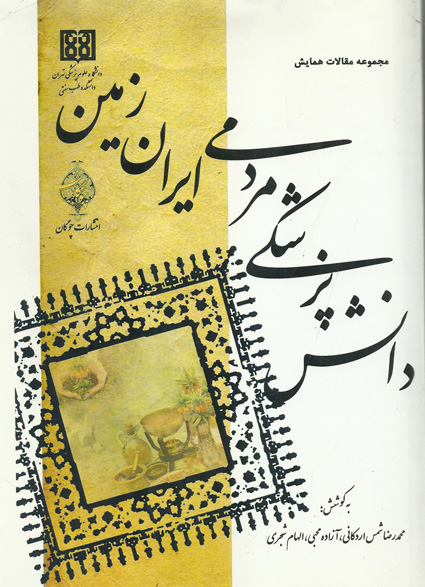 مجموعه مقالات همایش
دانشگاه علوم پزشکی تهران
دانشکده طب سنتی
انتشارات چوگان
دانش پزشکی مردمی ایران زمین
به کوشش:
محمدرضا شمس اردکانی، آزاده محبی، الهام شجری